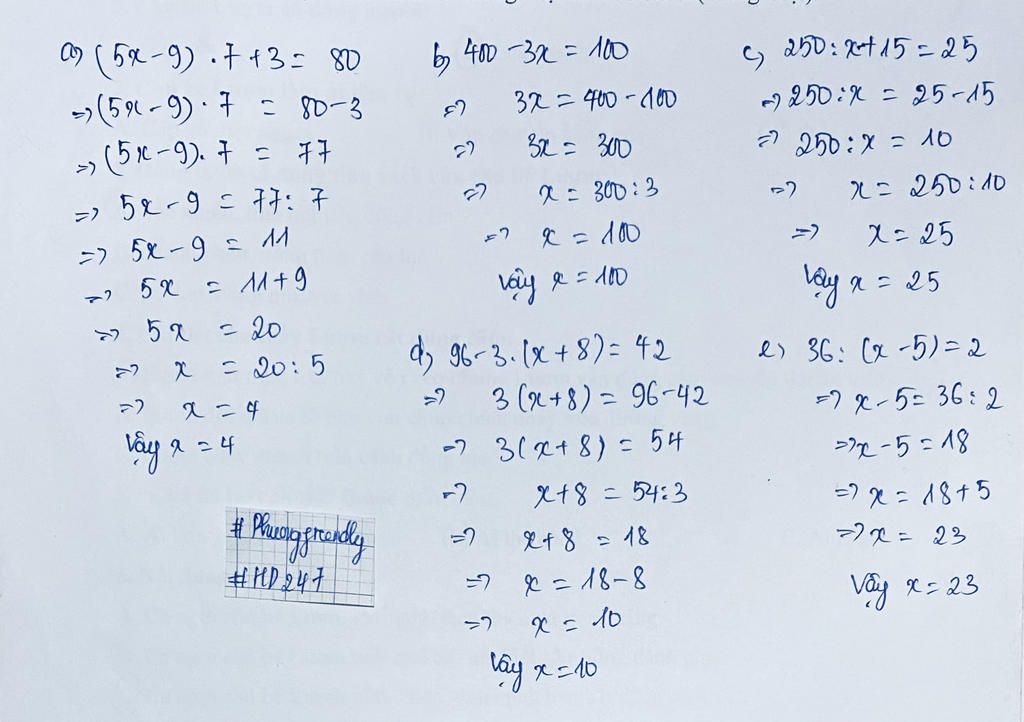 a) (5x-9).7+3 = 80
=> (5x-9).7 = 80-3
=> (5x-9).7 = 77
=> 5x-9 = 77:7
=> 5x-9 = 11
=> 5x = 11+9
=> 5x = 20
=> x = 20:5
=> x = 4
Vậy x = 4
b) 400-3x = 100
=> 3x = 400-100
=> 3x = 300
=> x = 300:3
=> x = 100
Vậy x = 100
c) 250:x+15 = 25
=> 250:x = 25-15
=> 250:x = 10
=> x = 250:10
=> x = 25
Vậy x = 25
d) 96-3.(x+8) = 42
=> 3(x+8) = 96-42
=> 3(x+8) = 54
=> x+8 = 54:3
=> x+8 = 18
=> x = 18-8
=> x = 10
Vậy x = 10
e) 36:(x-5) = 2
=> x-5 = 36:2
=> x-5 = 18
=> x = 18+5
=> x = 23
Vậy x = 23
#HD247